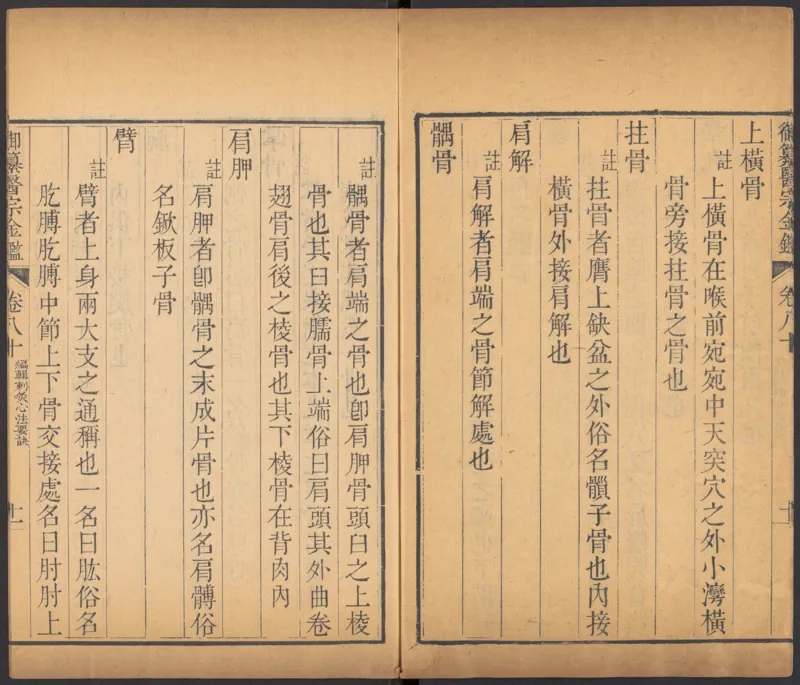 御纂醫宗金鑑
卷八十
上橫骨
註
上橫骨在喉前宛宛中天突穴之外小灣橫
骨旁接拄骨之骨也
拄骨
註
拄骨者膺上缺盆之外俗名髃子骨也內接
橫骨外接肩解也
肩解
註
肩解者肩端之骨節解處也
髃骨
註
髃骨者肩端之骨也卽肩胛骨頭臼之上棱
骨也其臼接臑骨上端俗曰肩頭其外曲卷
翅骨肩後之棱骨也其下棱骨在背肉內
肩胛
註
肩胛者卽髃骨之末成片骨也亦名肩髆俗
名鍁板子骨
臂
註
臂者上身兩大支之通稱也一名曰肱俗名
肐膊肐膊中節上下骨交接處名曰肘肘上
御纂醫宗金鑑
卷八十
編輯刺灸心法要訣